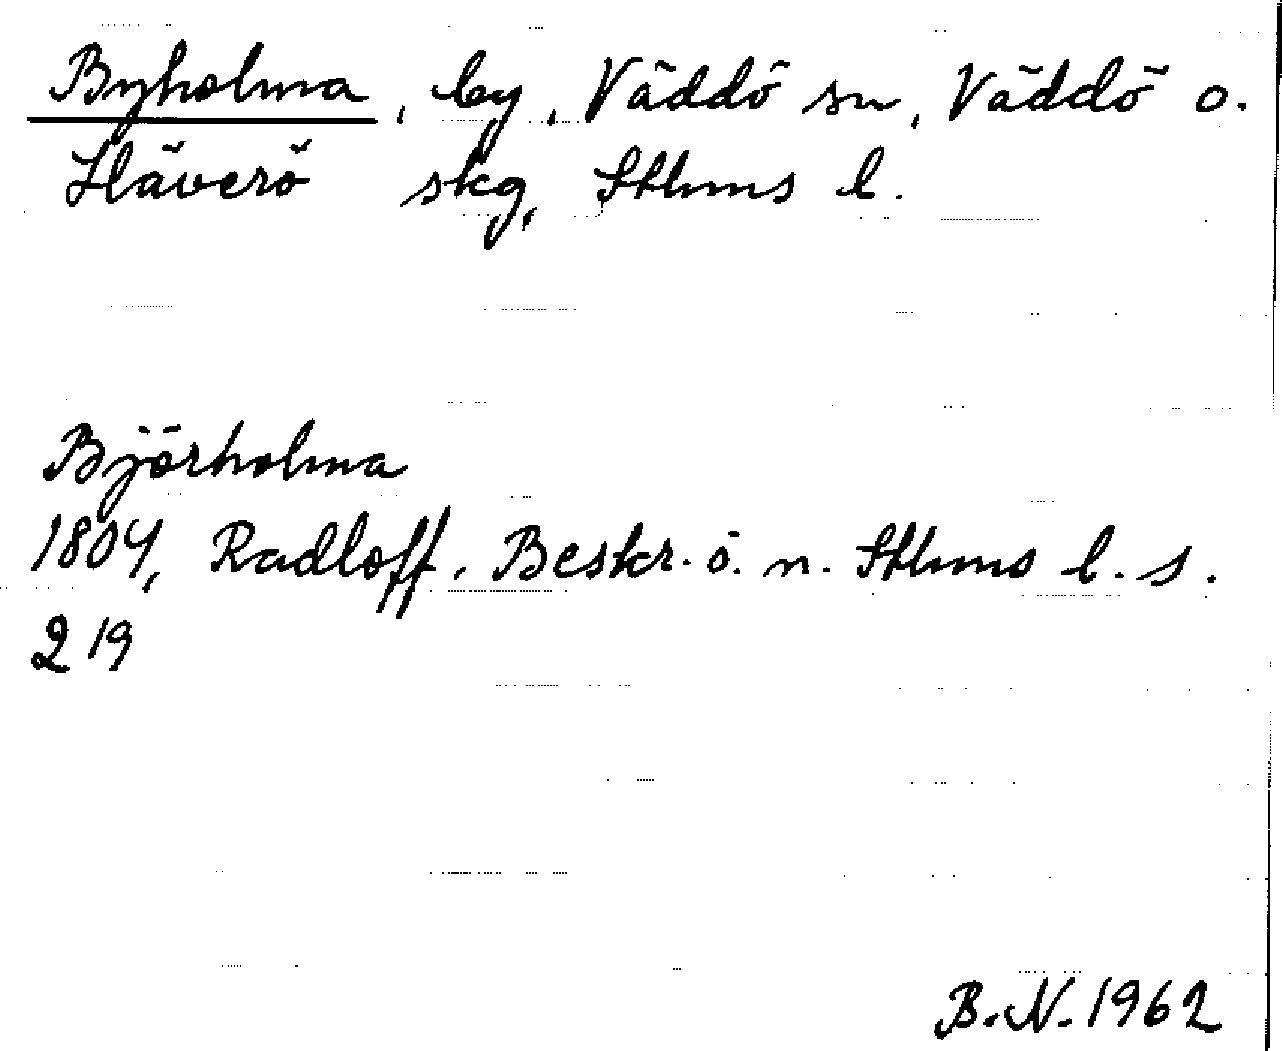 Byholma, by, Väddö sn, Väddö o.
Häverö skg, Sthms l.
Björholma
1804, Radloff. Beskr. ö. n. Sthms l. s.
219
B.N. 1962